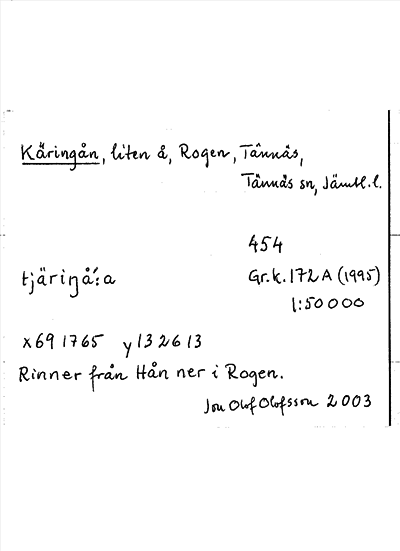 Käringån, liten å, Rogen, Tännäs,
Tännäs sn, Jämtl.l.
454
tjäriŋå´:a Gr.k. 172 A (1995)
1:50 000
x 69 1765 y 13 26 13
Rinner från Hån ner i Rogen.
Jon Olof Olofsson 2003